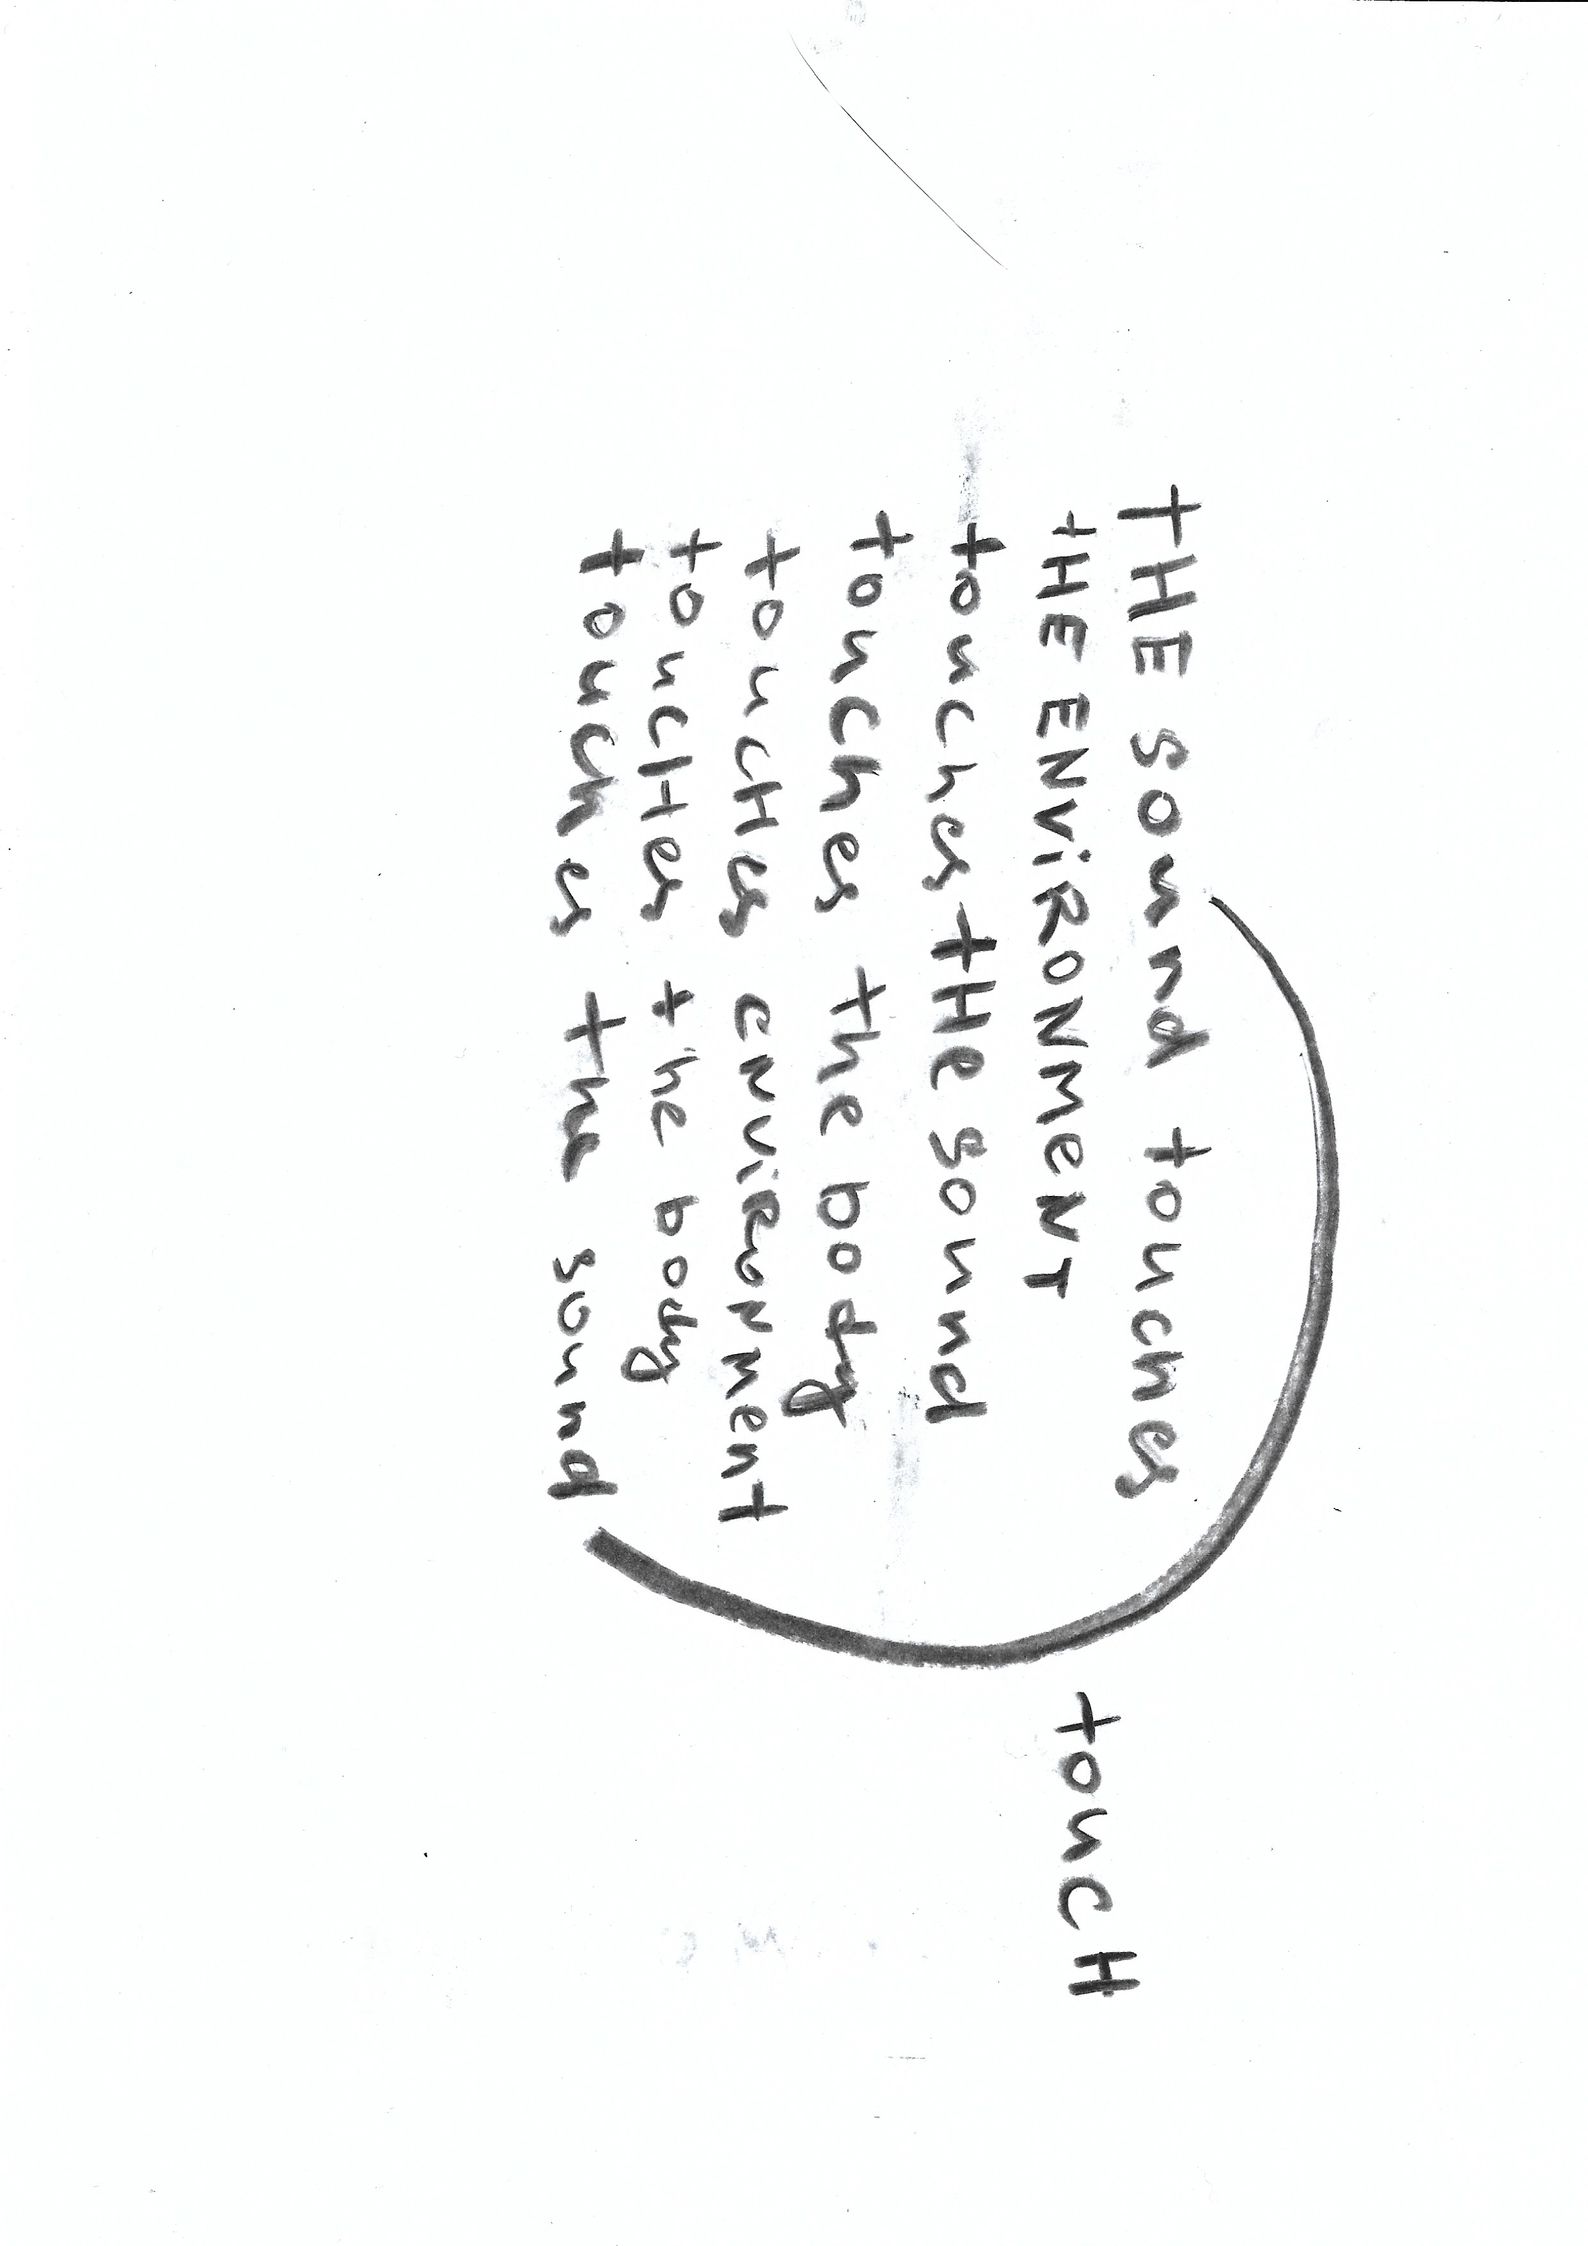 tHE sound touches
tHE ENViRONMeNT
touches tHe sound
touches the body
toucHes enviRonment
toucHes the body
touches the sound
toucH